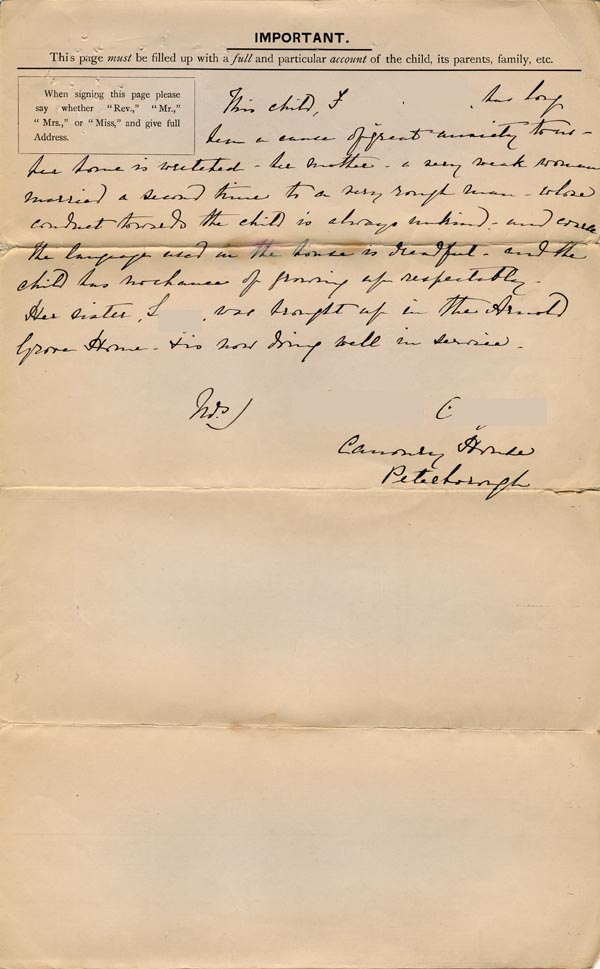 IMPORTANT.
This page must be filled up with a full and particular account of the child, its parents, family, etc.
When signing this page please
say whether "Rev.," "Mr.,"
"Mrs.," or "Miss," and give full
Address.
This child, F has long
been a cause of great anxiety to us -
her home is wretched - her mother - a very weak woman
married a second time to a very rough man - whose
conduct towards the child is always unkind - and coarse
the language used in the house is dreadful - and the
child has no chance of growing up respectably.
Her sister, L , was brought up in the Arnold
Grove Home - & is now doing well in service.
C
Canonry House
Peterborough